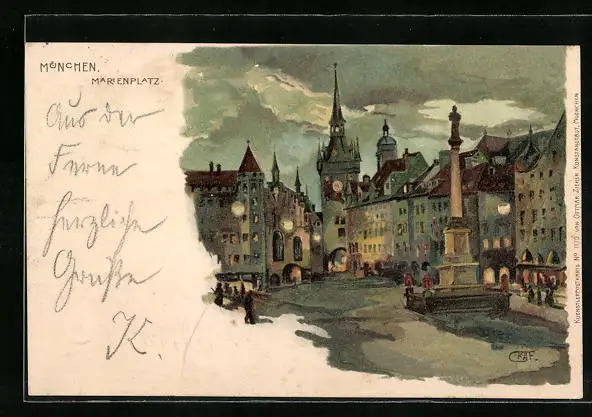 MÜNCHEN.
MARIENPLATZ.
Aus der
Ferne
herzliche
Grüße
K.
KUENSTLERPOSTKARTE No 1170 VON OTTMAR ZIEHER, KUNSTANSTALT, MÜNCHEN